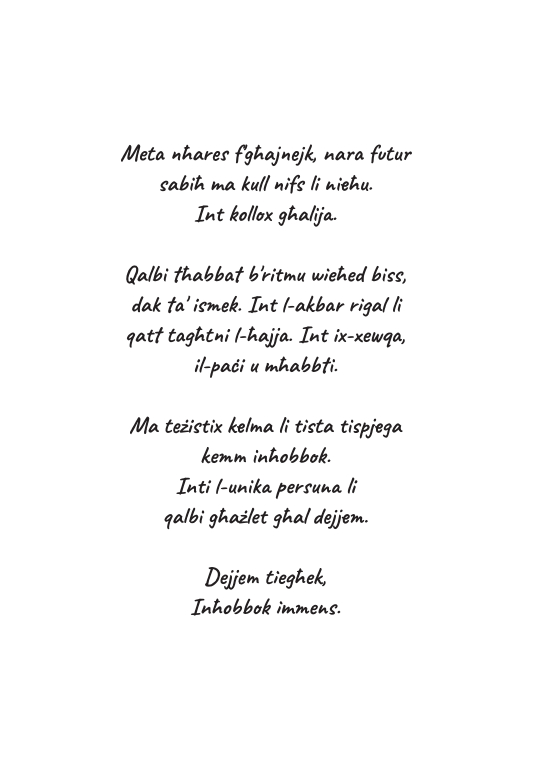 Meta nħares f'għajnejk, nara futur
sabiħ ma kull nifs li nieħu.
Int kollox għalija.
Qalbi tħabbat b'ritmu wieħed biss,
dak ta' ismek. Int l-akbar rigal li
qatt tagħtni l-ħajja. Int ix-xewqa,
il-paċi u mħabbti.
Ma teżistix kelma li tista tispjega
kemm inħobbok.
Inti l-unika persuna li
qalbi għażlet għal dejjem.
Dejjem tiegħek,
Inħobbok immens.